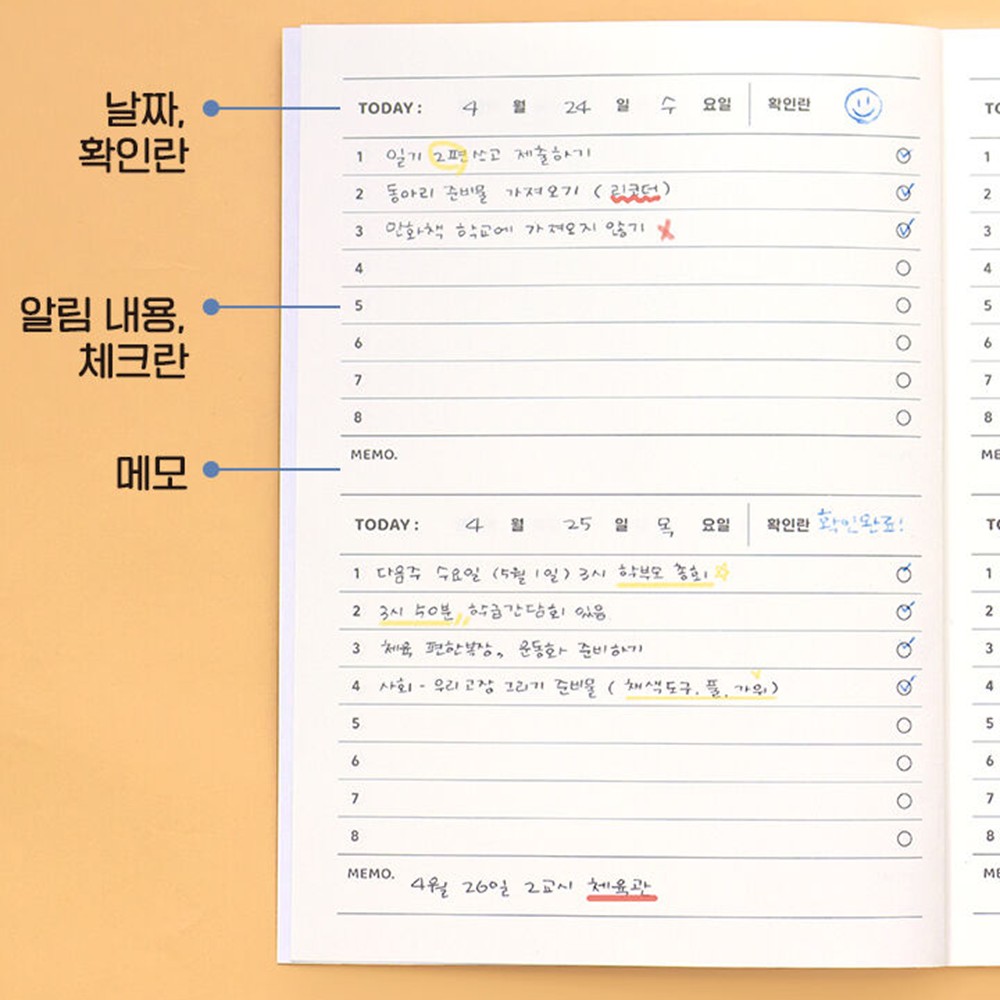 날짜,
확인란
알림 내용,
체크란
메모
TODAY : 4 월 24 일 수 요일 확인란
1 일기 2편 쓰고 제출하기
2 동아리 준비물 가져오기 (리코더)
3 만화책 학교에 가져오지 않기
4
5
6
7
8
MEMO.
TODAY : 4 월 25 일 목 요일 확인란 확인완료!
1 다음주 수요일 (5월 1일) 3시 학부모 총회
2 3시 50분, 학급간담회 있음
3 체육 편한복장, 운동화 준비하기
4 사회 - 우리고장 그리기 준비물 ( 채색도구, 풀, 가위)
5
6
7
8
MEMO. 4월 26일 2교시 체육관
1
2
3
4
5
6
7
8
1
2
3
4
5
6
7
8